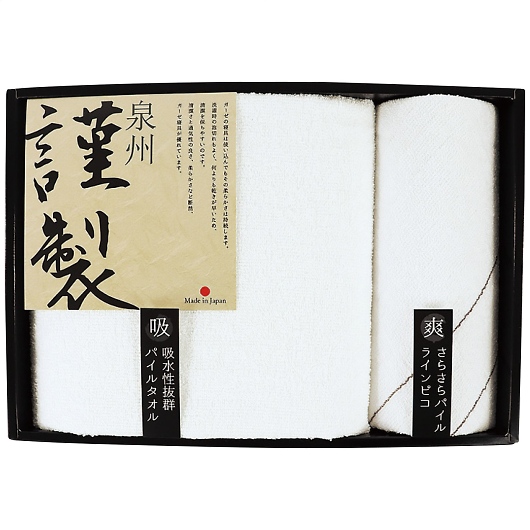 泉州
謹製
ガーゼの寝具は使い込んでもその柔らかさは持続します。
洗濯時の糸切れもよく、何よりも乾きが早いため、
清潔を保ちやすいのです。
清潔さと通気性の良さ、柔らかさなど断然、
ガーゼ寝具が優れています。
Made in Japan
吸
吸水性抜群
パイルタオル
爽
さらさらパイル
ラインピコ